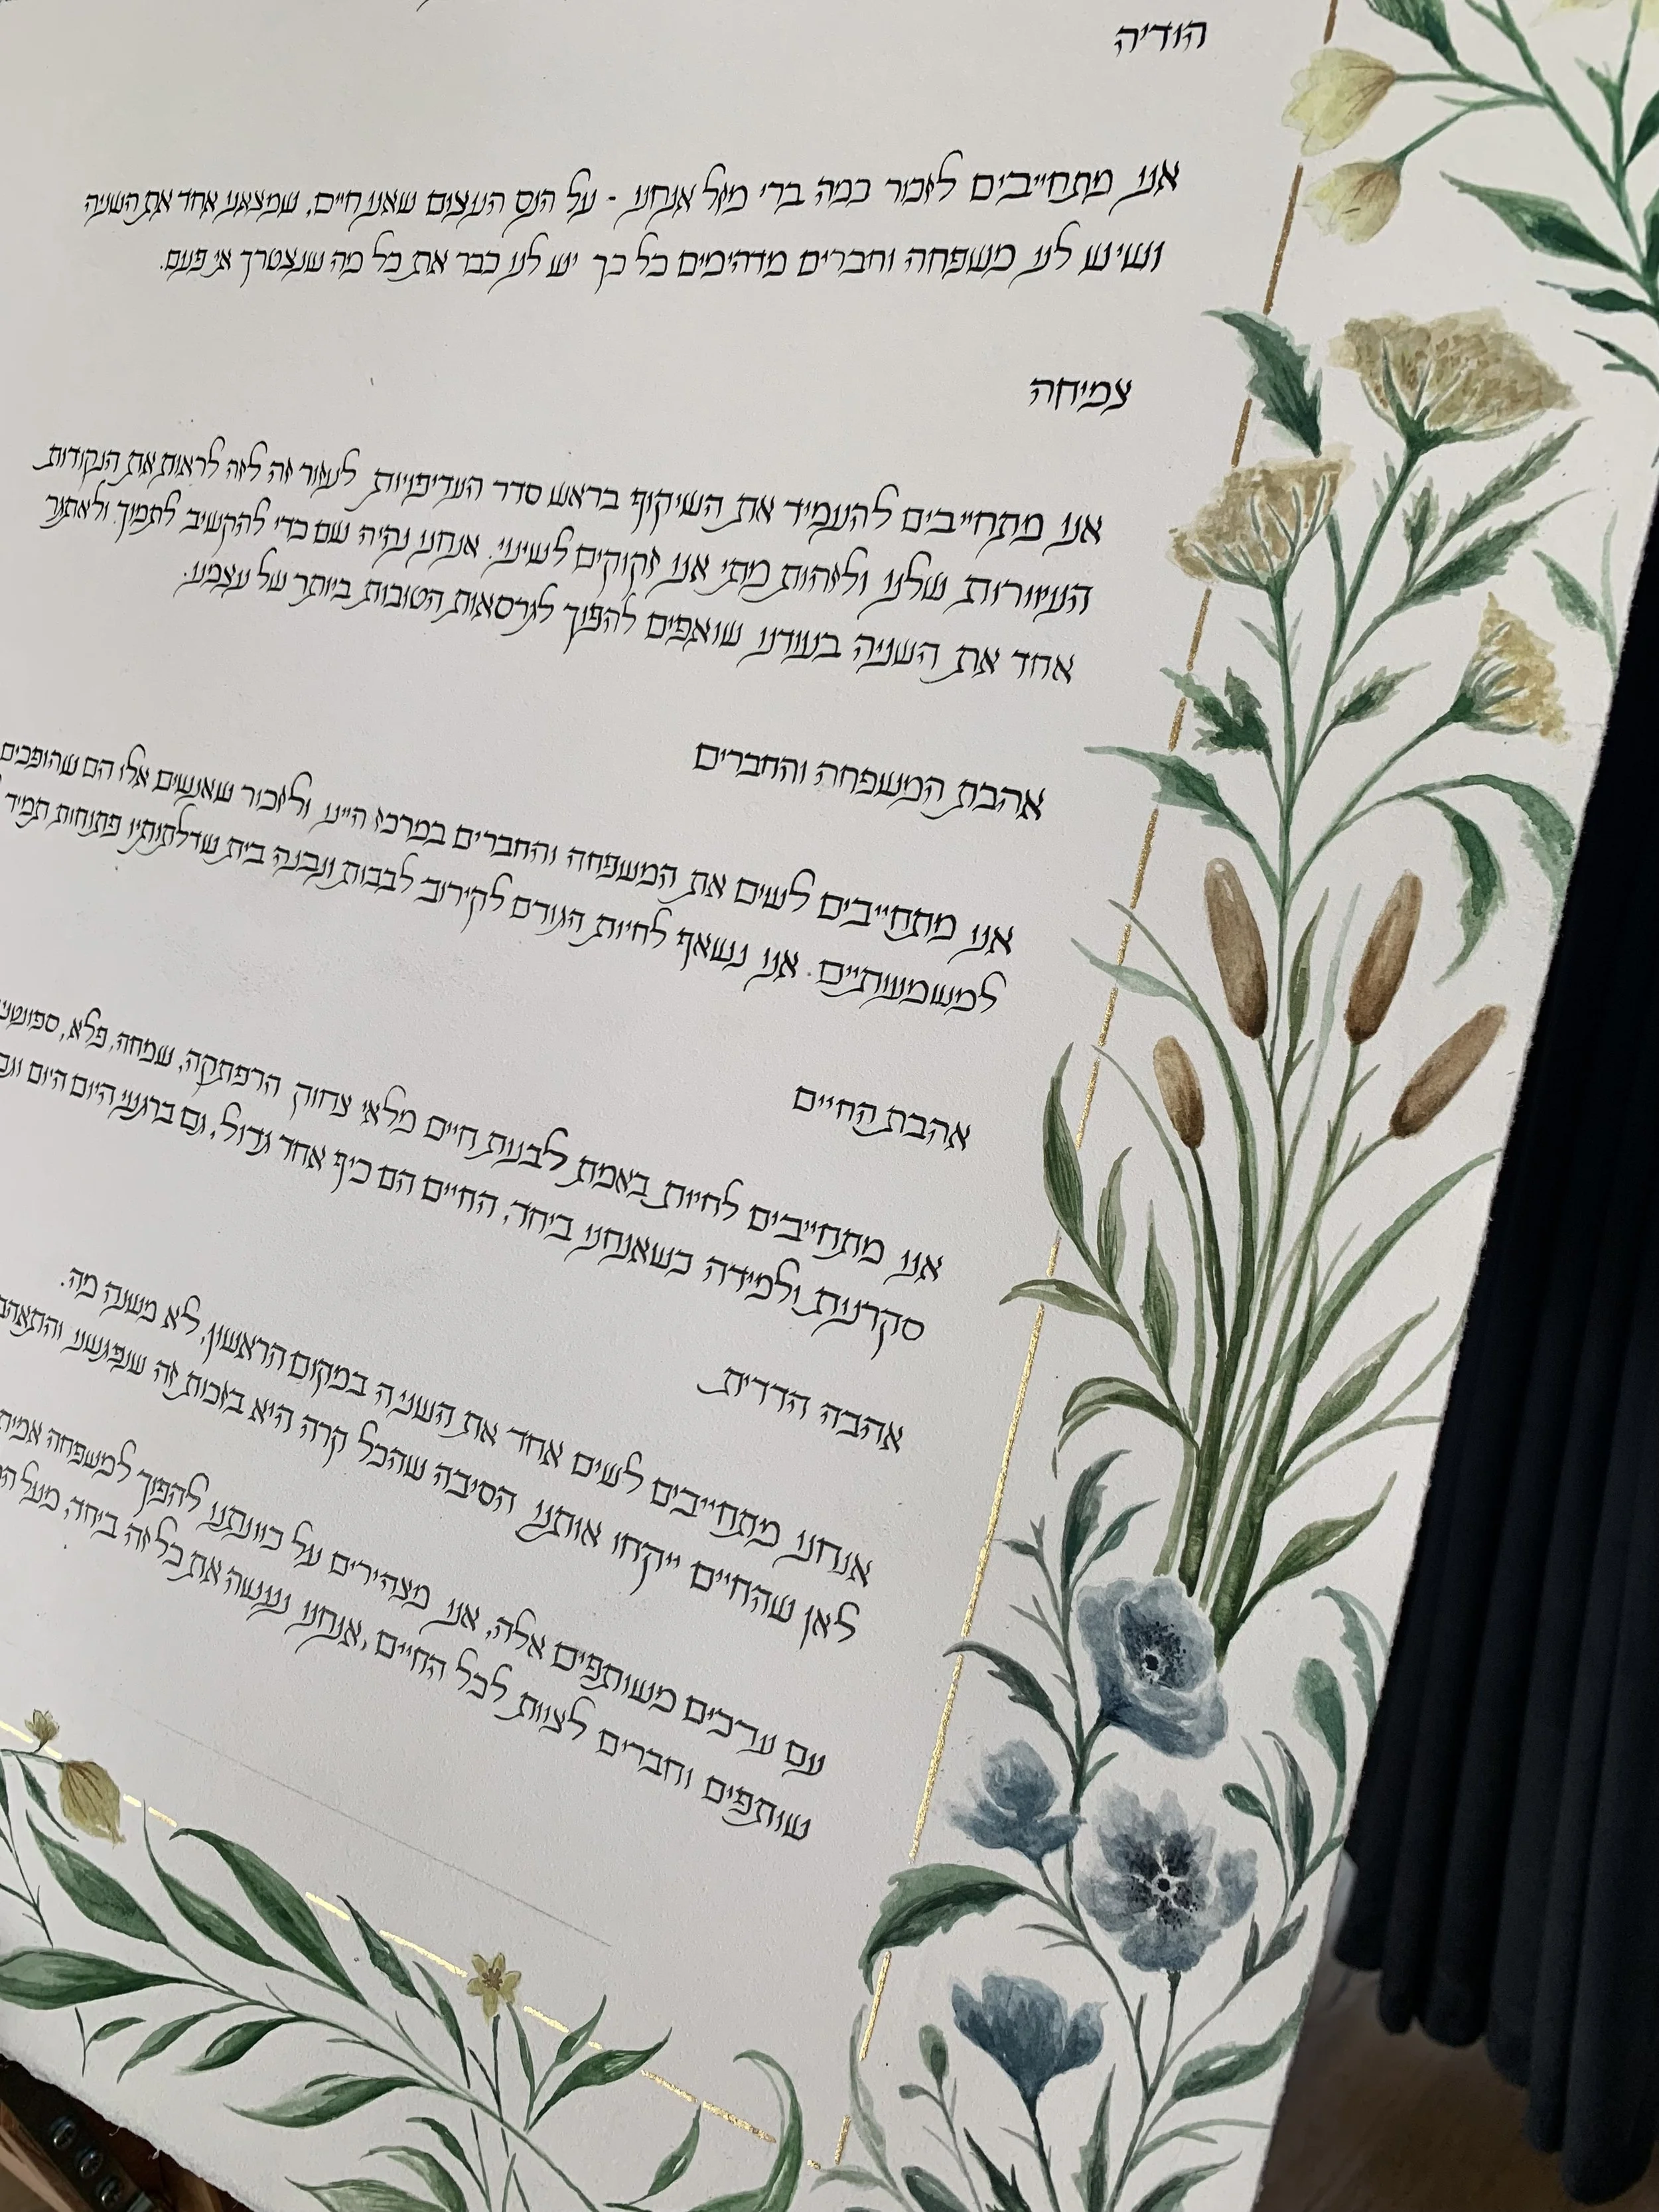 הודיה
אנו מתחייבים לזכור כמה ברי מזל אנחנו - על הנס העצום שאנו חיים, שמצאנו אחד את השניה
ושיש לנו משפחה וחברים מדהימים כל כך יש לנו כבר את כל מה שנצטרך אי פעם.
צמיחה
אנו מתחייבים להעמיד את השיקוף בראש סדר העדיפויות לעזור זה לזה לראות את הנקודות
העיוורות שלנו ולזהות מתי אנו זקוקים לשינוי. אנחנו נהיה שם כדי להקשיב לתמוך ולאתגר
אחד את השניה בעודנו שואפים להפוך לגרסאות הטובות ביותר של עצמנו.
אהבת המשפחה והחברים
אנו מתחייבים לשים את המשפחה והחברים במרכז חיינו ולזכור שאנשים אלו הם שהופכים
למשמעותיים. אנו נשאף לחיות הגורם לקירוב לבבות ונבנה בית שדלתותיו פתוחות תמיד
אהבת החיים
אנו מתחייבים לחיות באמת לבנות חיים מלאי צחוק הרפתקה, שמחה, פלא,
סקרנות ולמידה כשאנחנו ביחד, החיים הם כיף אחד גדול, גם ברגעי היום היום
אהבה הדדית
אנחנו מתחייבים לשים אחד את השניה במקום הראשון, לא משנה מה.
לאן שהחיים ייקחו אותנו הסיבה שהכל קרה היא בזכות זה שנפגשנו
עם ערכים משותפים אלה, אנו מצהירים על כוונתנו להפוך למשפחה
שותפים וחברים לצוות לכל החיים, אנחנו נעשה את כל זה ביחד, מעל